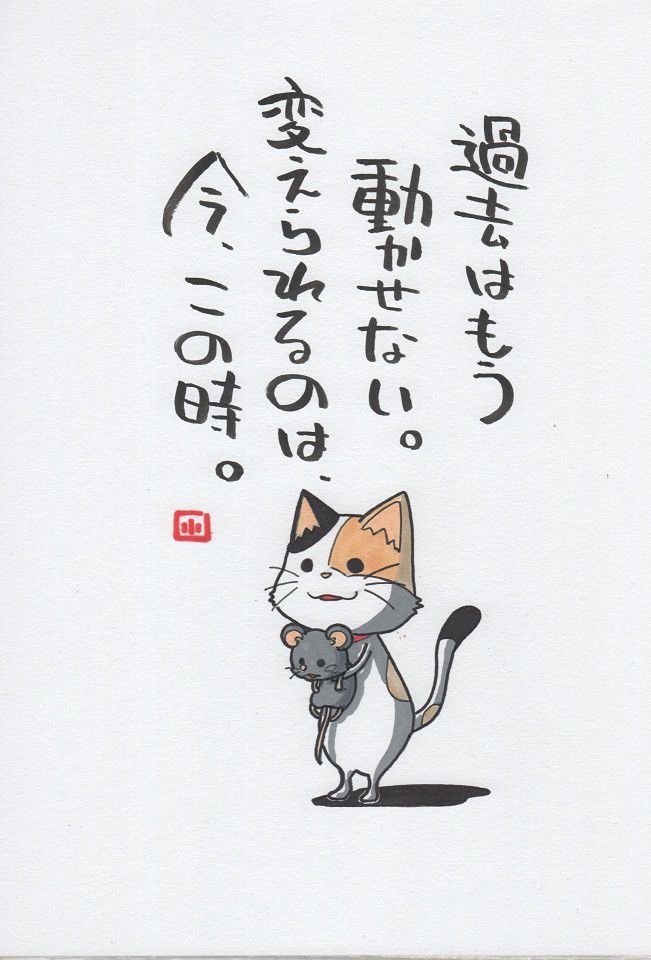 過去はもう
動かせない。
変えられるのは、
今、この時。